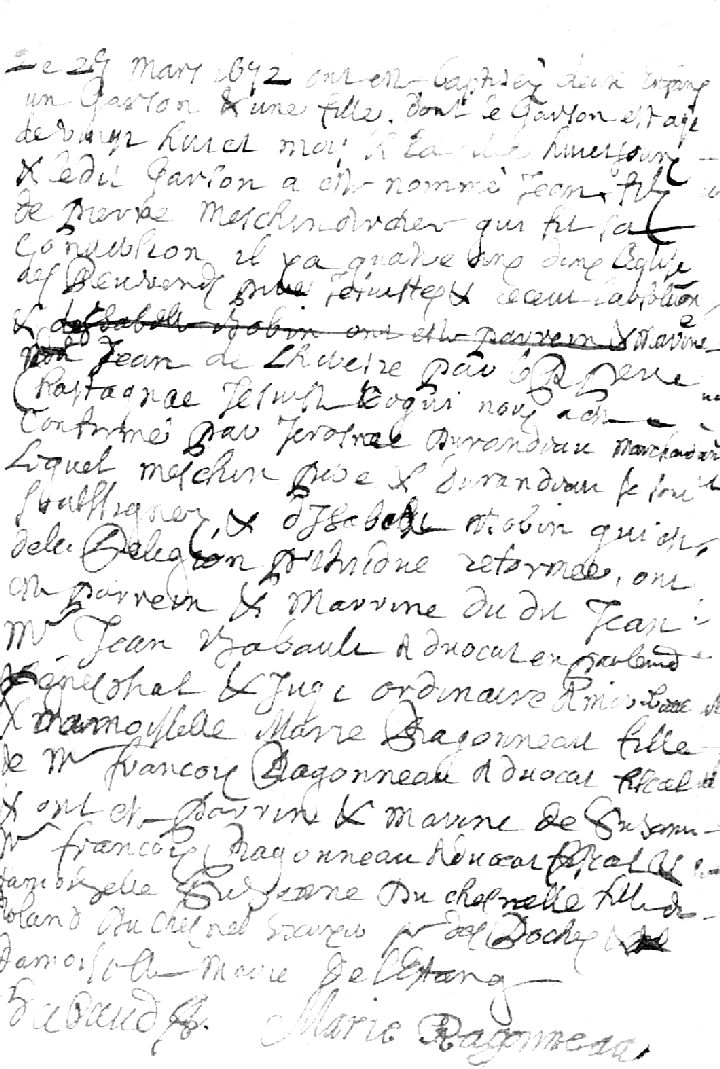 Le 29 Mars 1672 ont esté baptisés deux enfans
un Garson & une fille. dont le Garson est agé
de vingt huict mois & la fille huict jours
& ledit Garson a esté nommé Jean fils
de Pierre Meschin qui fit sa
Conversion il y a quatre ans dans l'Eglise
des Reverends peres Jesuistes & receut l'absolution
& d'Isabelle Robin ont esté parrein & Marine
Jean de par le R. P. Pierre
Chastagnac Jesuiste ce qui nous a esté
Confirmé par Durandeau Marchand
Lequel Meschin pere & Durandeau se sont
soubssignez, & d'Isabelle Robin qui est
de la Relegion pretendue reformée, ont
esté parrein & Marrine du dit Jean
Mr Jean Babault Advocat en parlement
Sénéschal & Juge ordinaire
& damoyselle Marie Ragonneau fille
de Mr francois Ragonneau Advocat fiscal
& ont esté parrin & marine de Susanne
Mr francois Ragonneau Advocat fiscal &
damoiselle Susanne Du chesnelle fille de
Roland Du chesnel Escuyer sr des Roches &
damoiselle Marie de lEstang
Babaud Marie Ragonneau